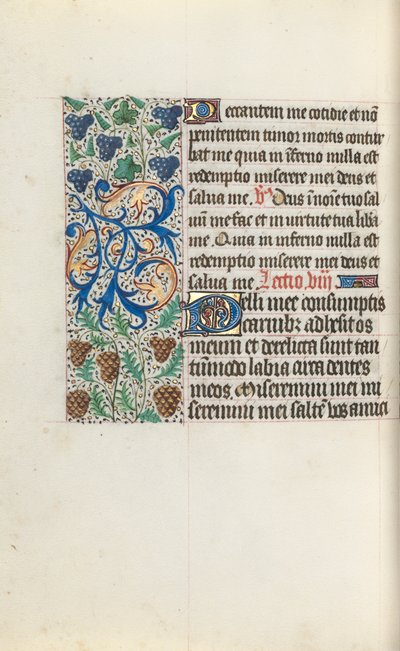 Peccantem me cotidie et nō
penitentem timor mortis contur
bat me quia in īferno nulla est
redemptio miserere mei deus et
salua me. V̄s Deus ī noīe tuo sal
uū me fac et in uirtute tua liba
me. Quia in inferno nulla est
redemptio miserere mei deus et
salua me. Lectio viij
Pelli mee consumptis
carnibꝫ adhesit os
meum et derelicta sunt tan
tūmodo labia circa dentes
meos. Miseremini mei mi
seremini mei saltē vos amici